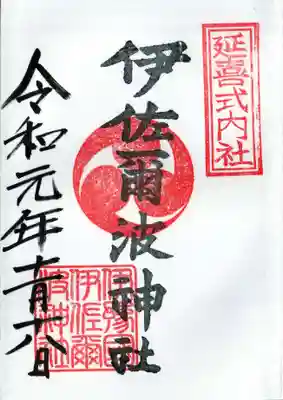 延喜式内社
伊佐爾波神社
伊豫國
伊佐爾
波神社
令和元年十一月十八日